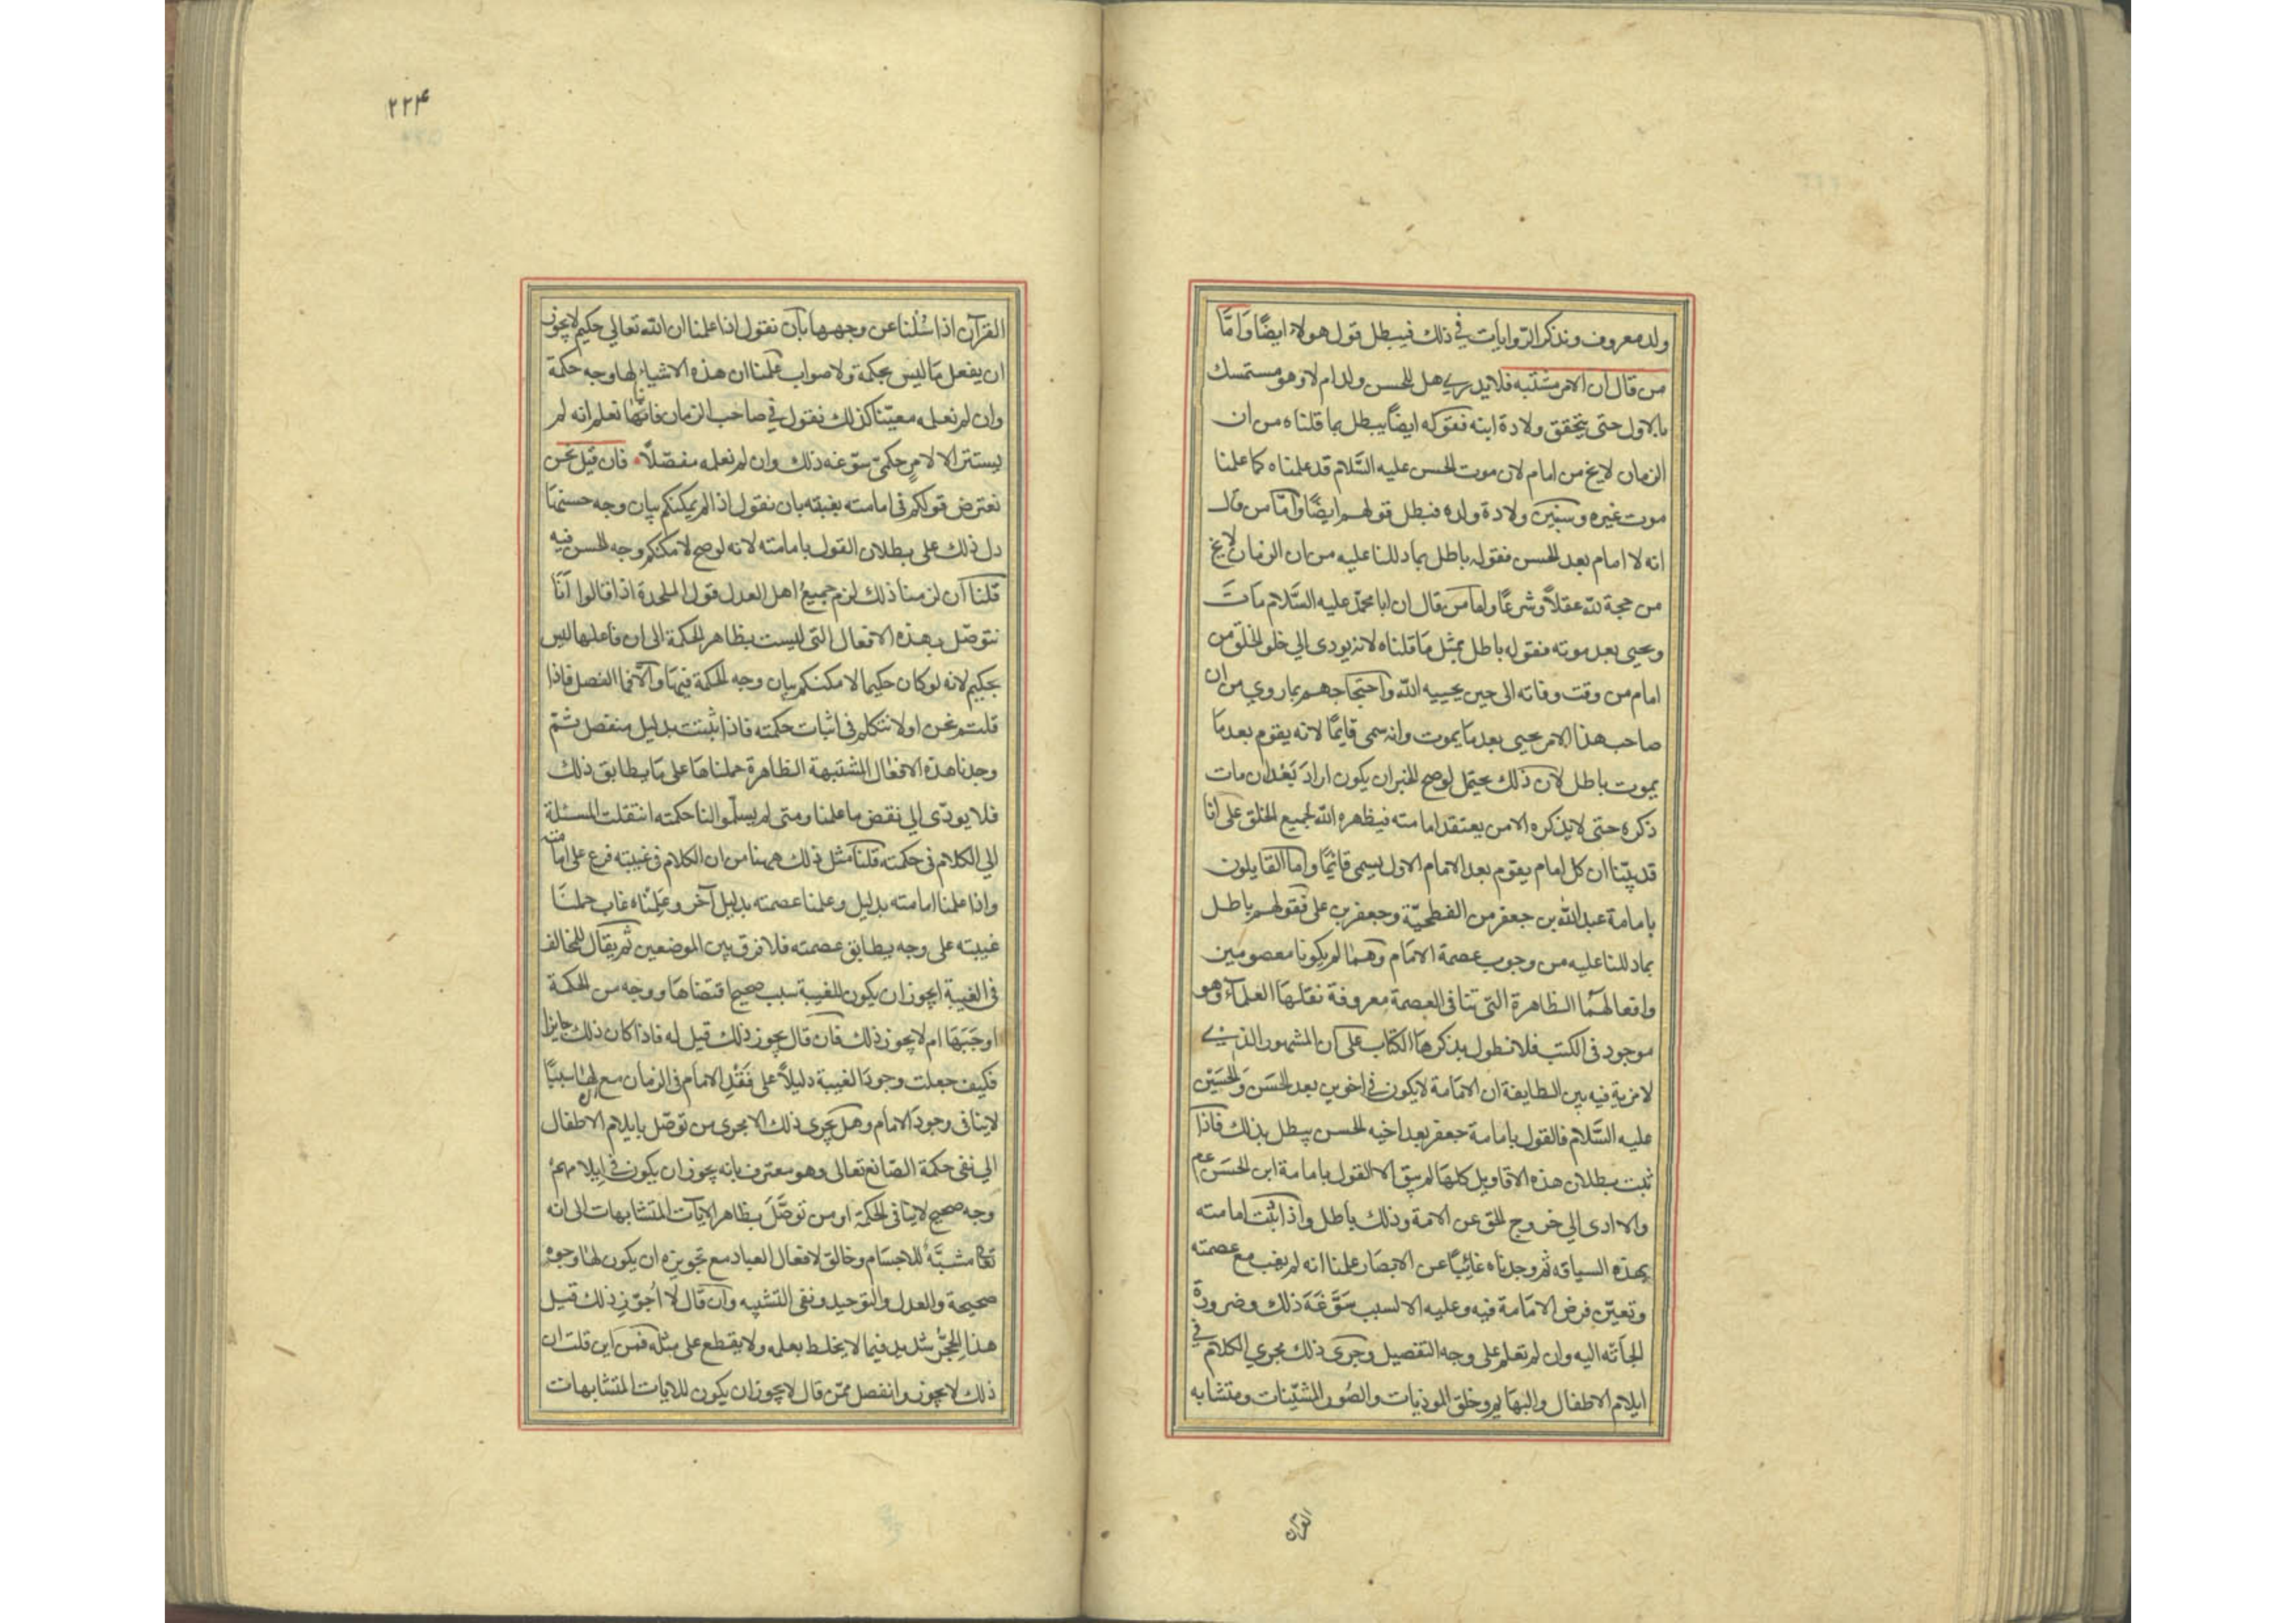 ولد معروف ونذكر الروايات في ذلك فيبطل قول هولاء ايضًا وَامَّا
من قال ان الامر مشتبه فلا يدري هل للحسن ولد ام لا وهو مستمسك
بالاول حتى يتحقق ولادة ابنه فقوله ايضاً يبطل بما قلناه من ان
الزمان لا يخ من امام لان موت الحسن عليه السَّلام قد علمناه كما علمنا
موت غيره وسنبين ولادة ولده فبطل قولهم ايضًا وامّا من قال
انه لا امام بعد الحسن فقوله باطل بما دللنا عليه من ان الزمان لا يخ
من حجة لله عقلاً وشرعًا واما من قال ان ابا محمّد عليه السَّلام مَاتَ
ويحيى بعد موته فقوله باطل بمثل مَا قلناه لانه يودى الي خلو الخلق من
امام من وقت وفاته الى حين يحييه الله واحتجاجهم بما روي من ان
صاحب هذا الامر يحيى بعد مَا يموت وانه سمى قايمًا لانه يقوم بعد مَا
يموت باطل لان ذلك يحتمل لوصح الخبر ان يكون ارادَ بَعْدَ ان مات
ذكره حتى لا يذكره الا من يعتقد امامته فيظهره الله لجميع الخلق على انا
قد بيّنا ان كل امام يقوم بعد الامَام الاول يسمى قائمًا واما القايلون
بامامة عبد الله بن جعفر من الفطحيّة وجعفر بن على فقولهم باطل
بما دللنا عليه من وجوب عصمة الامَام وهُما لم يكونا معصومين
وافعالهُما الظاهرة التى تنافى العصمة معروفة نقلهَا العلمآء وهو
موجود فى الكتب فلا نطول بذكرهَا الكتاب على ان المشهور الذي
لا مرية فيه بين الطايفة ان الامَامة لا يكون في اخوين بعد الحَسَن وَالحُسَيْن
عليه السَّلام فالقول بامامة جعفر بعد اخيه الحسن يبطل بذلك فاذا
ثبت بطلان هذه الاقاويل كلهَا لم يبق الا القول بامامة ابن الحَسَن عم
والا ادى الي خروج الحق عن الامة وذلك باطل واذا ثبت امامته
بهذه السياقه ثم وجدناه غائِبًا عن الابصَار علمنا انه لم يغب مع عصمته
وتعيّن فرض الامَامة فيه وعليه الا لسبب سَوَّغَهَ ذلك وضرورة
الجأته اليه وان لم تعلم على وجه التفصيل وجرى ذلك مجرى الكلام في
ايلام الاطفال والبهَايم وخلق الموذيات والصُور المشيّنات ومتشابه
القرآن
۲۲۴
القرآن اذا سُئلنا عن وجهها بان نقول اذا علمنا ان الله تعالي حكيم لا يجوز
ان يفعل مَا ليس بحكمة ولا صواب علمنا ان هذه الاشياء لها وجه حكمة
وان لم نعلمه معيّنا كذلك نقول في صاحب الزمان فانا نعلم انه لم
يستتر الا لامرٍ حكمىّ سوّغه ذلك وان لم نعلمه مفصّلاً فان قيل نحن
نعترض قولكم فى امامته بغيبته بان نقول اذا لم يمكنكم بيان وجه حسنهَا
دل ذلك على بطلان القول بامامته لانه لوصح لامكنكم وجه الحسن فيه
قلنا ان لزمنا ذلك لزم جميعُ اهل العدل قول الملحدة اذا قالوا انّا
نتوصّل بهذه الافعال التى ليست بظاهر الحكمة الى ان فاعلها ليس
بحكيم لانه لو كان حكيما لامكنكم بيان وجه الحكمة فيهَا والا فما الفصل فاذا
قلتم نحن اولا نتكلم فى اثبات حكمته فاذا ثبتت بدليل منفصل ثمّ
وجدنا هذه الافعال المشتبهة الظاهرة حملناهَا على مَا يطابق ذلك
فلا يودّى الي نقض ما علمنا ومتى لم يسلّموا لنا حكمته انتقلت المسئلة
الي الكلام فى حكمته قلنا مثل ذلك هيهنا من ان الكلام فى غيبته فرع على امامته
واذا علمنا امامته بدليل وعلمنا عصمته بدليل آخر وعَلِمْناه غاب حملنَا
غيبته على وجه يطابق عصمته فلا فرق بين الموضعين ثم يقال للمخالف
فى الغيبة ايجوز ان يكون للغيبة سبب صحيح اقتضاهَا ووجه من الحكمة
اوجَبَهَا ام لا يجوز ذلك فان قال يجوز ذلك قيل له فاذا كان ذلك جايزا
فكيف جعلت وجودَ الغيبة دليلاً على فَقْدِ الامَام فى الزمان مع لهَا سببًا
لا ينافى وجودَ الامَام وهل يجرى ذلك الا مجرى من توصّل بايلام الاطفال
الي نفى حكمة الصّانع تعالى وهو معترف بانه يجوز ان يكون في ايلامهم
وجه صحيح لا ينافى الحكمة او من توصَّلَ بظاهر الآيات المتشابهات الى انه
تعا مشبَّهٌ للاجسَام وخالق لافعال العباد مع تجويزه ان يكون لهَا وجوه
صحيحة والعدل والتوحيد ونفى التشبيه وان قال لَا اُجَوّز ذلك قيل
هذا تحجّر شديد فيما لا يحَاط بعلمه ولا يقطع على مثله فمن اين قلت ان
ذلك لا يجوز وانفصل ممّن قال لا يجوز ان يكون للايات المتشابهات